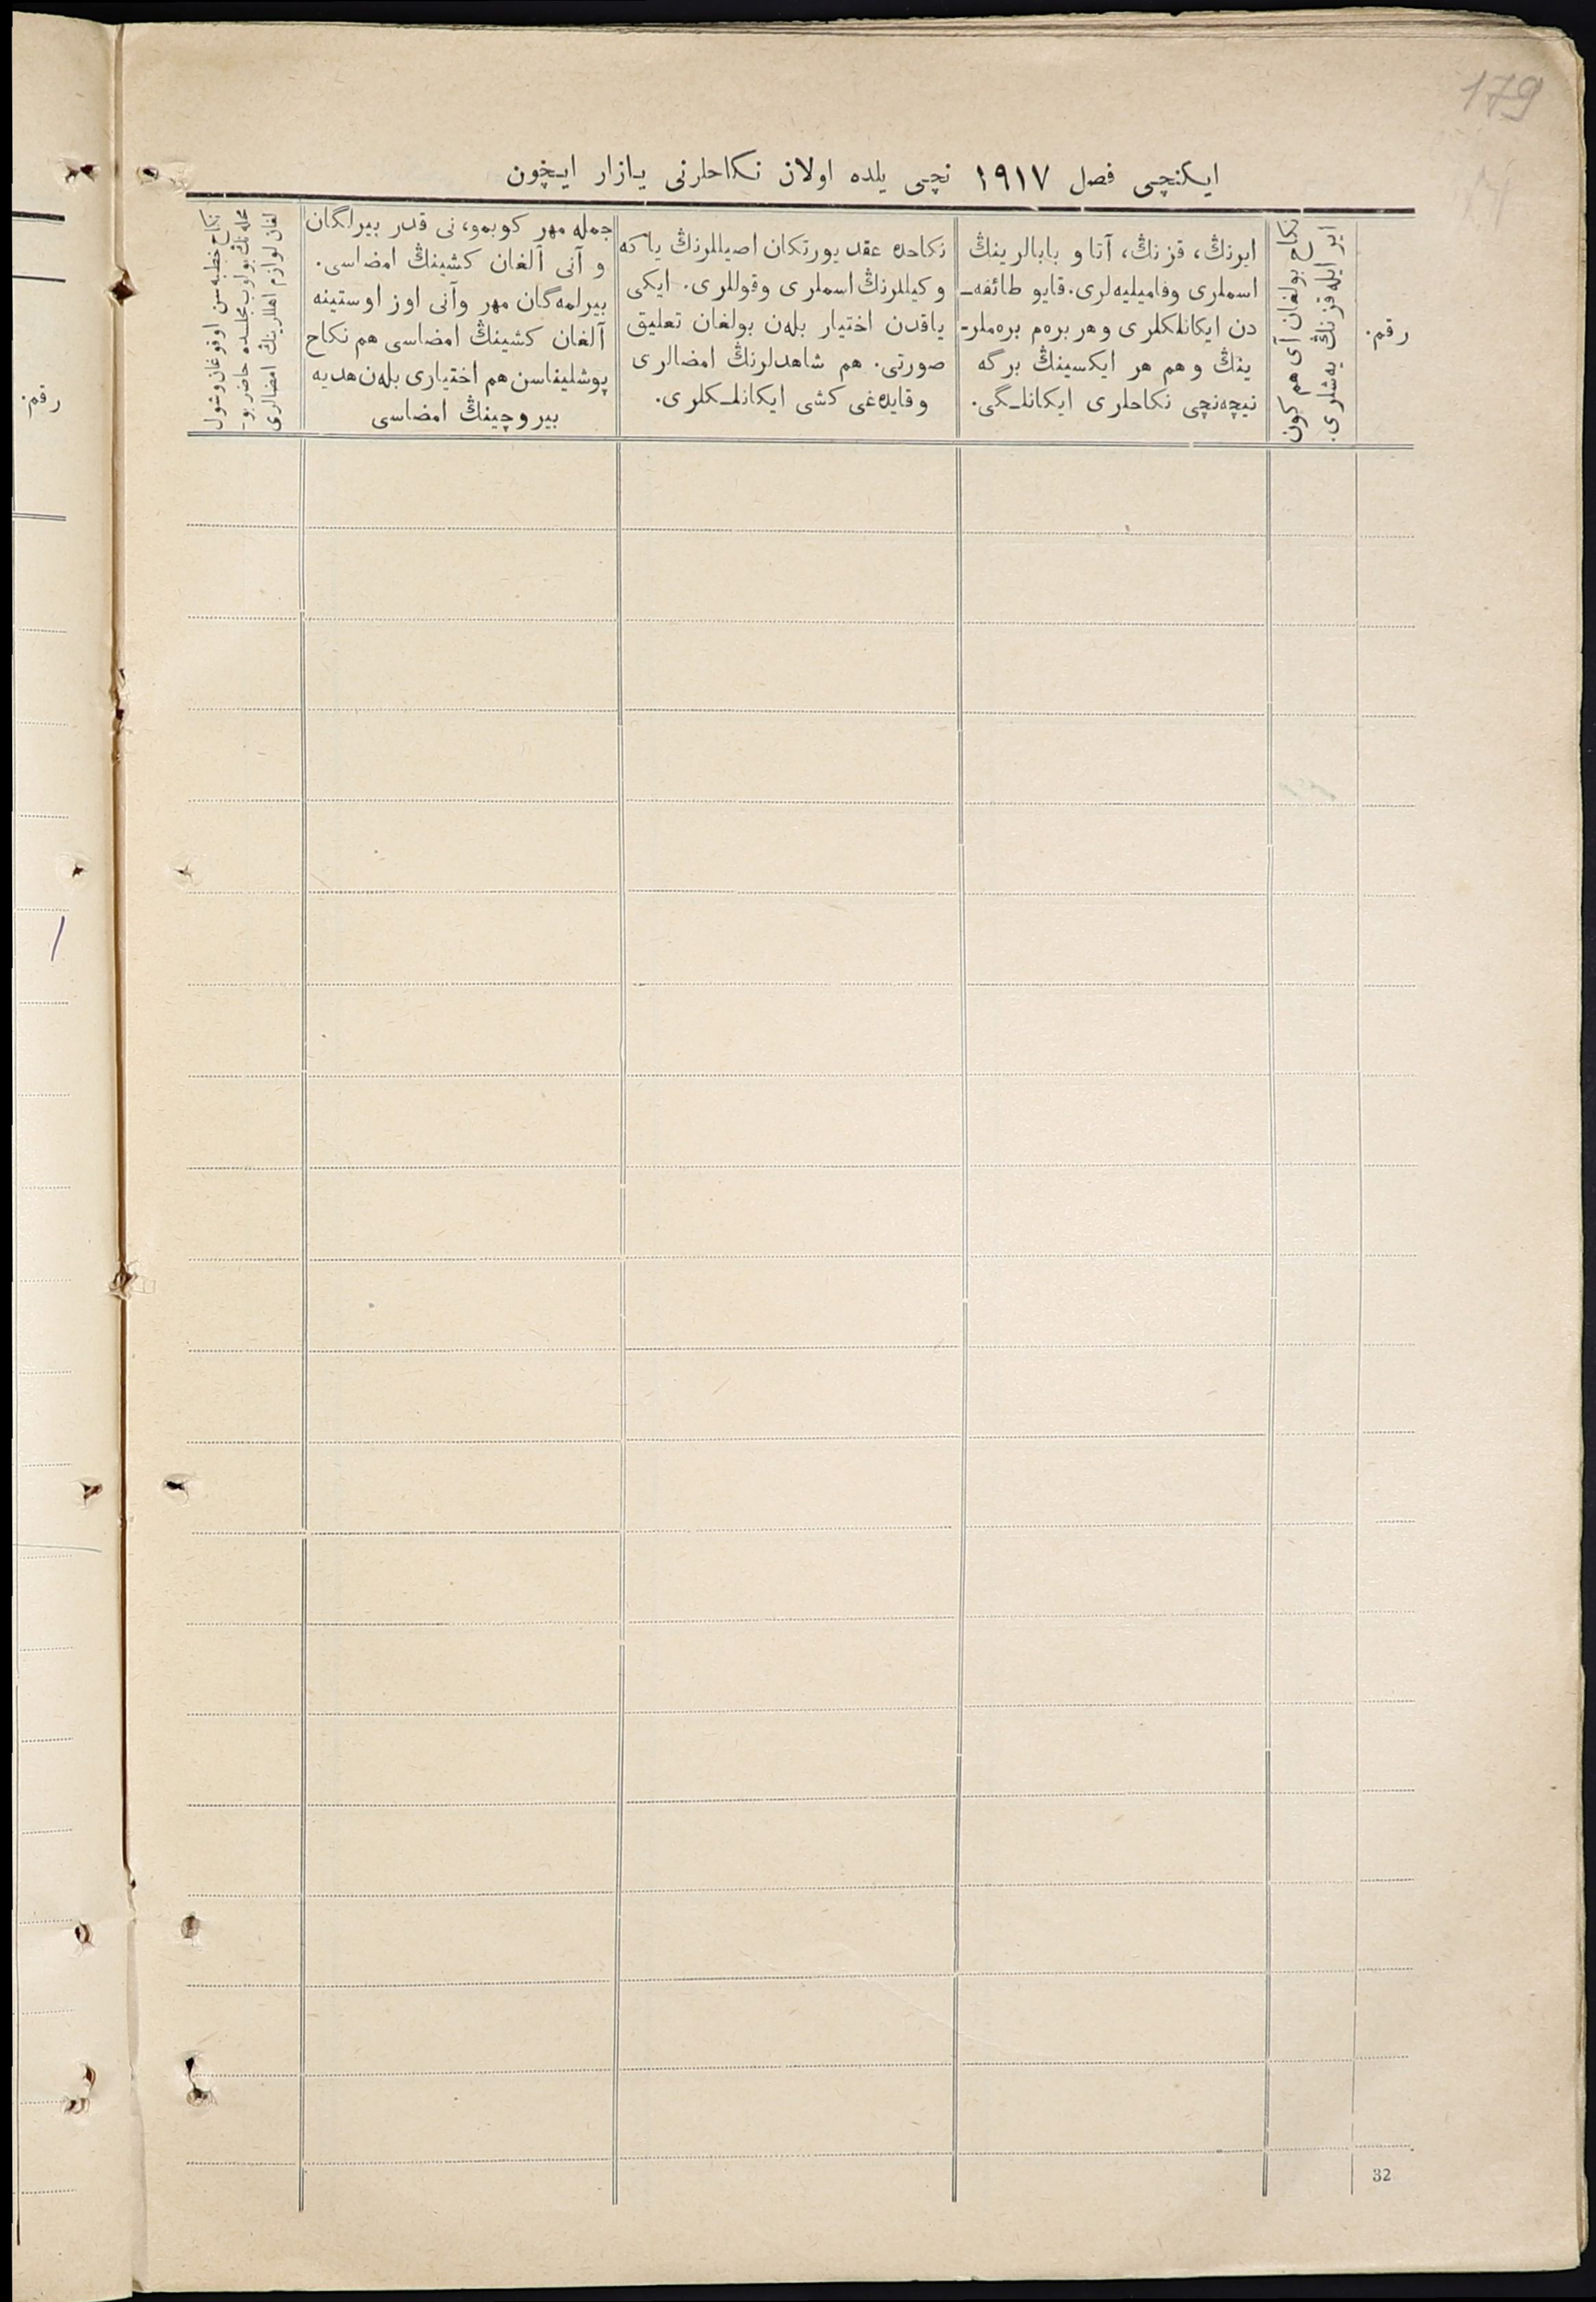 179
ایکنچی فصل ۱۹۱۷ نچی یلده اولان نکاحلرنی یازار ایچون
رقم.
نکاح بولغان آی هم کون
ایر ایله قزنڭ یه‌شلری.
ایرنڭ، قزنڭ، آتا و بابالرینڭ
اسملری وفامیلیه‌لری. قایو طائفه‌ـ
دن ایکانلکلری و هر بره‌م بره‌ملرـ
ینڭ و هم هر ایکسینڭ برگه
نیچه‌نچی نکاحلری ایکانلـگی.
نکاحده عقد یورتکان اصیللرنڭ یا که
وکیللرنڭ اسملری وقوللری. ایکی
یاقدن اختیار بله‌ن بولغان تعلیق
صورتی. هم شاهدلرنڭ امضالری
و قایده‌غی کشی ایکانلـکلری.
جمله مهر کوبمو، نی قدر بیرلگان
و آنی آلغان کشینڭ امضاسی.
بیرلمه‌گان مهر وآنی اوز اوستینه
آلغان کشینڭ امضاسی هم نکاح
پوشلیناسن هم اختیاری بله‌ن هدیه
بیروچینڭ امضاسی
نکاح خطبه‌سن اوقوغان وشول
محله‌نڭ بولوب مجلسده حاضر بوـ
لغان لوازم اهللرینڭ امضالری
رقم.
32